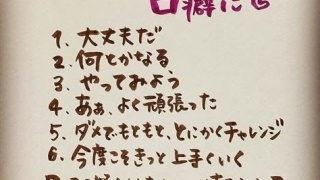 口癖に
1. 大丈夫だ
2. 何とかなる
3. やってみよう
4. あぁ、よく頑張った
5. ダメでもともと、とにかくチャレンジ
6. 今度こそきっと上手くいく